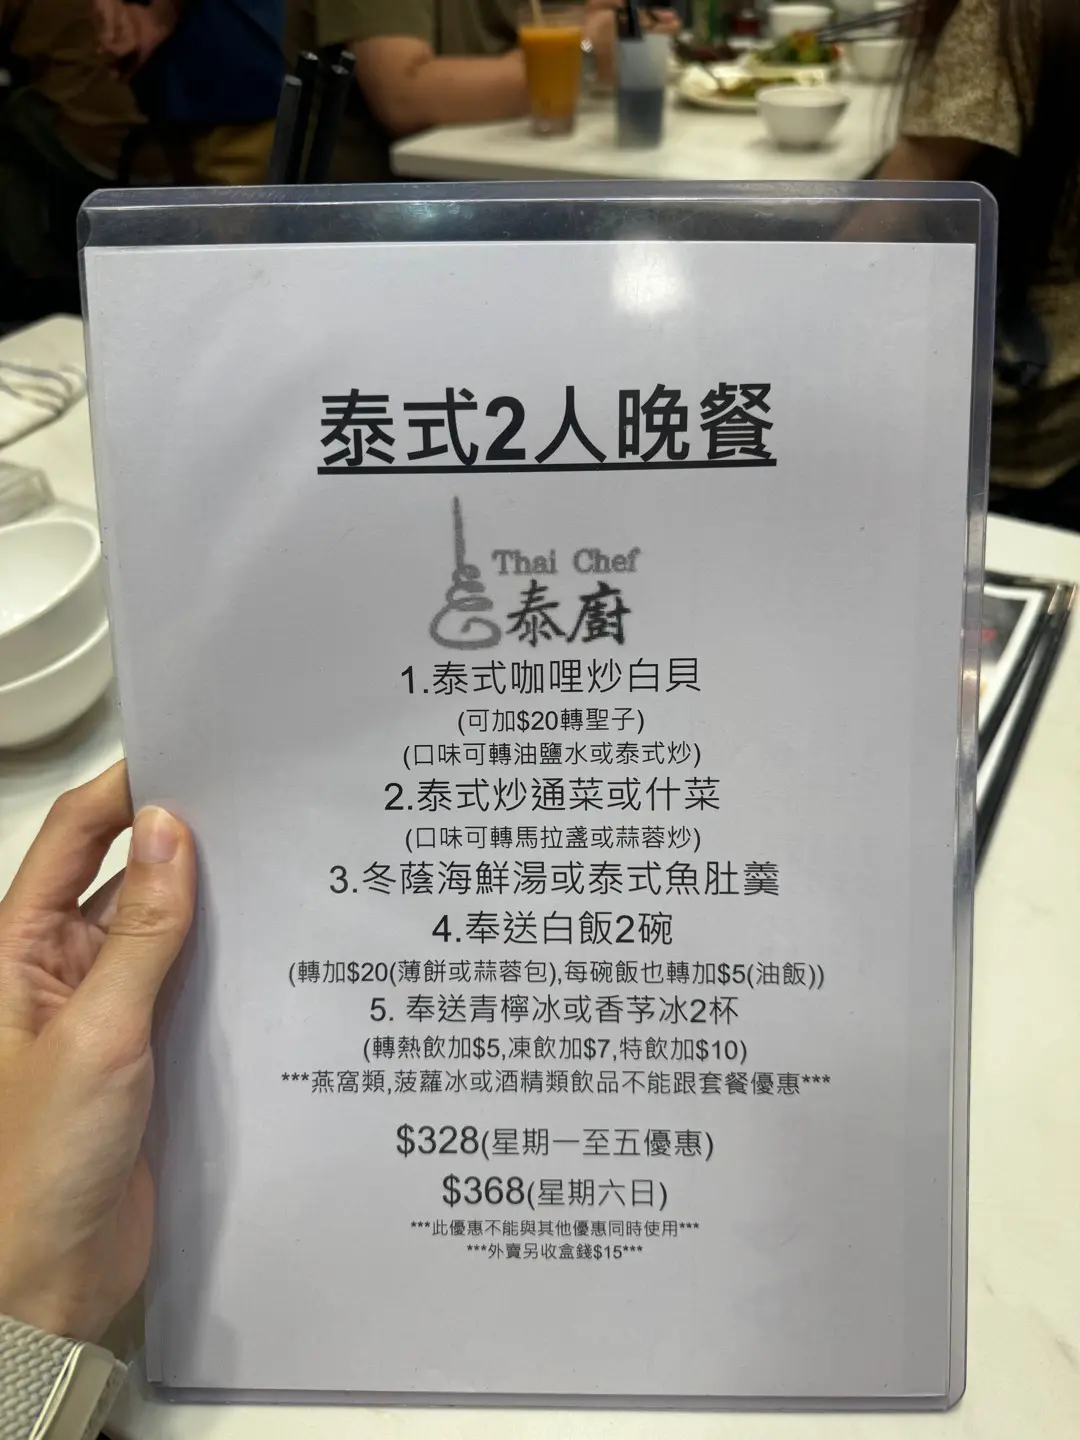 泰式2人晚餐
Thai Chef
泰廚
1.泰式咖哩炒白貝
(可加$20轉聖子)
(口味可轉油鹽水或泰式炒)
2.泰式炒通菜或什菜
(口味可轉馬拉盞或蒜蓉炒)
3.冬蔭海鮮湯或泰式魚肚羹
4.奉送白飯2碗
(轉加$20(薄餅或蒜蓉包),每碗飯也轉加$5(油飯))
5. 奉送青檸冰或香茅冰2杯
(轉熱飲加$5,凍飲加$7,特飲加$10)
***燕窩類,菠蘿冰或酒精類飲品不能跟套餐優惠***
$328(星期一至五優惠)
$368(星期六日)
***此優惠不能與其他優惠同時使用***
***外賣另收盒錢$15***